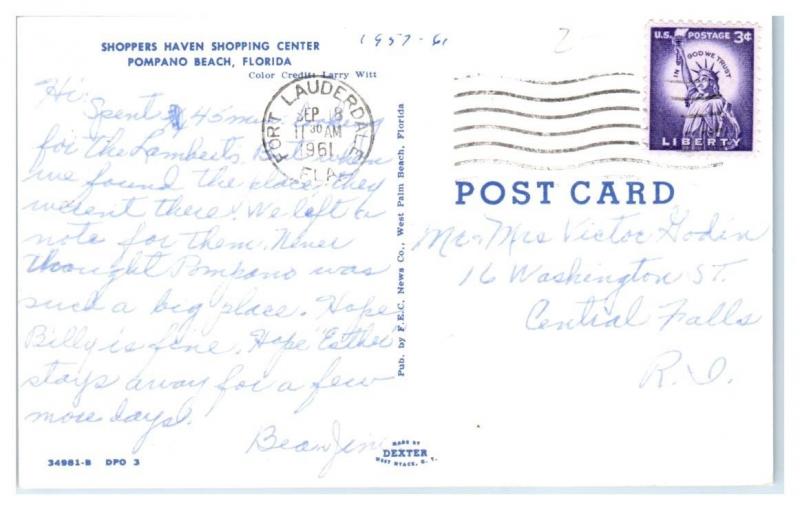 SHOPPERS HAVEN SHOPPING CENTER
POMPANO BEACH, FLORIDA
Color Credit: Larry Witt
1957-61
2
Hi:
Spent 45 min.
for the Lamberts. But when
we found the place they
weren't there! We left a
note for them. Never
thought Pompano was
such a big place. Hope
Billy is fine. Hope "Esther"
stays away for a few
more days!
FORT LAUDERDALE
SEP 8
11 30 AM
1961
FLA.
U.S. POSTAGE 3¢
IN GOD WE TRUST
LIBERTY
POST CARD
Mr + Mrs Victor Godin
16 Washington ST.
Central Falls
R.I.
Pub. by F.E.C. News Co., West Palm Beach, Florida
34981-B DPO 3
MADE BY
DEXTER
WEST NYACK, N. Y.